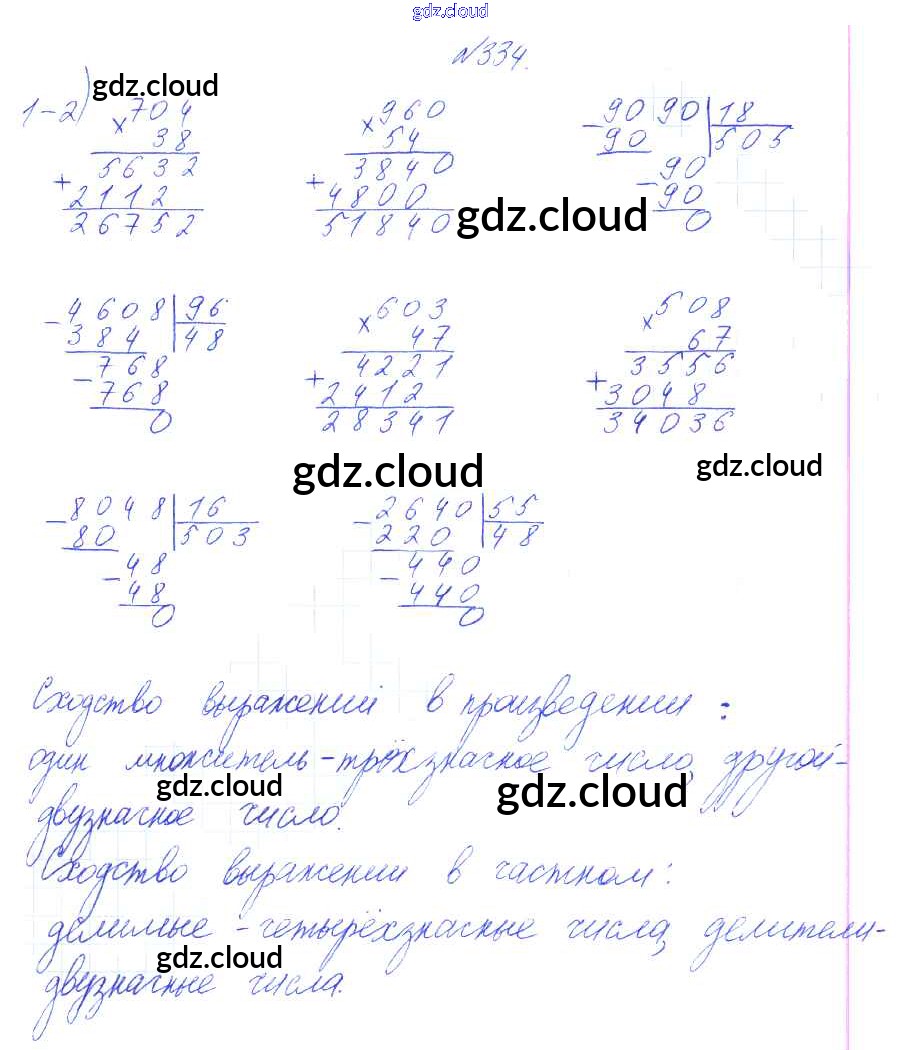 gdz.cloud
№334.
gdz.cloud
1-2) 704 960 9090|18
× 38 × 54 - 90 505
5632 3840 90
+ 2112 + 4800 - 90
26752 51840 0
gdz.cloud
- 4608|96 603 508
384 48 × 47 × 67
768 4221 3556
- 768 + 2412 + 3048
0 28341 34036
gdz.cloud gdz.cloud
- 8048|16 - 2640|55
80 503 220 48
- 48 - 440
48 440
0 0
Сходство выражений в произведении:
один множитель-трёхзначное число, другой-
gdz.cloud gdz.cloud
двузначное число.
Сходство выражений в частном:
делимые-четырёхзначные числа, делители-
gdz.cloud
двузначные числа.